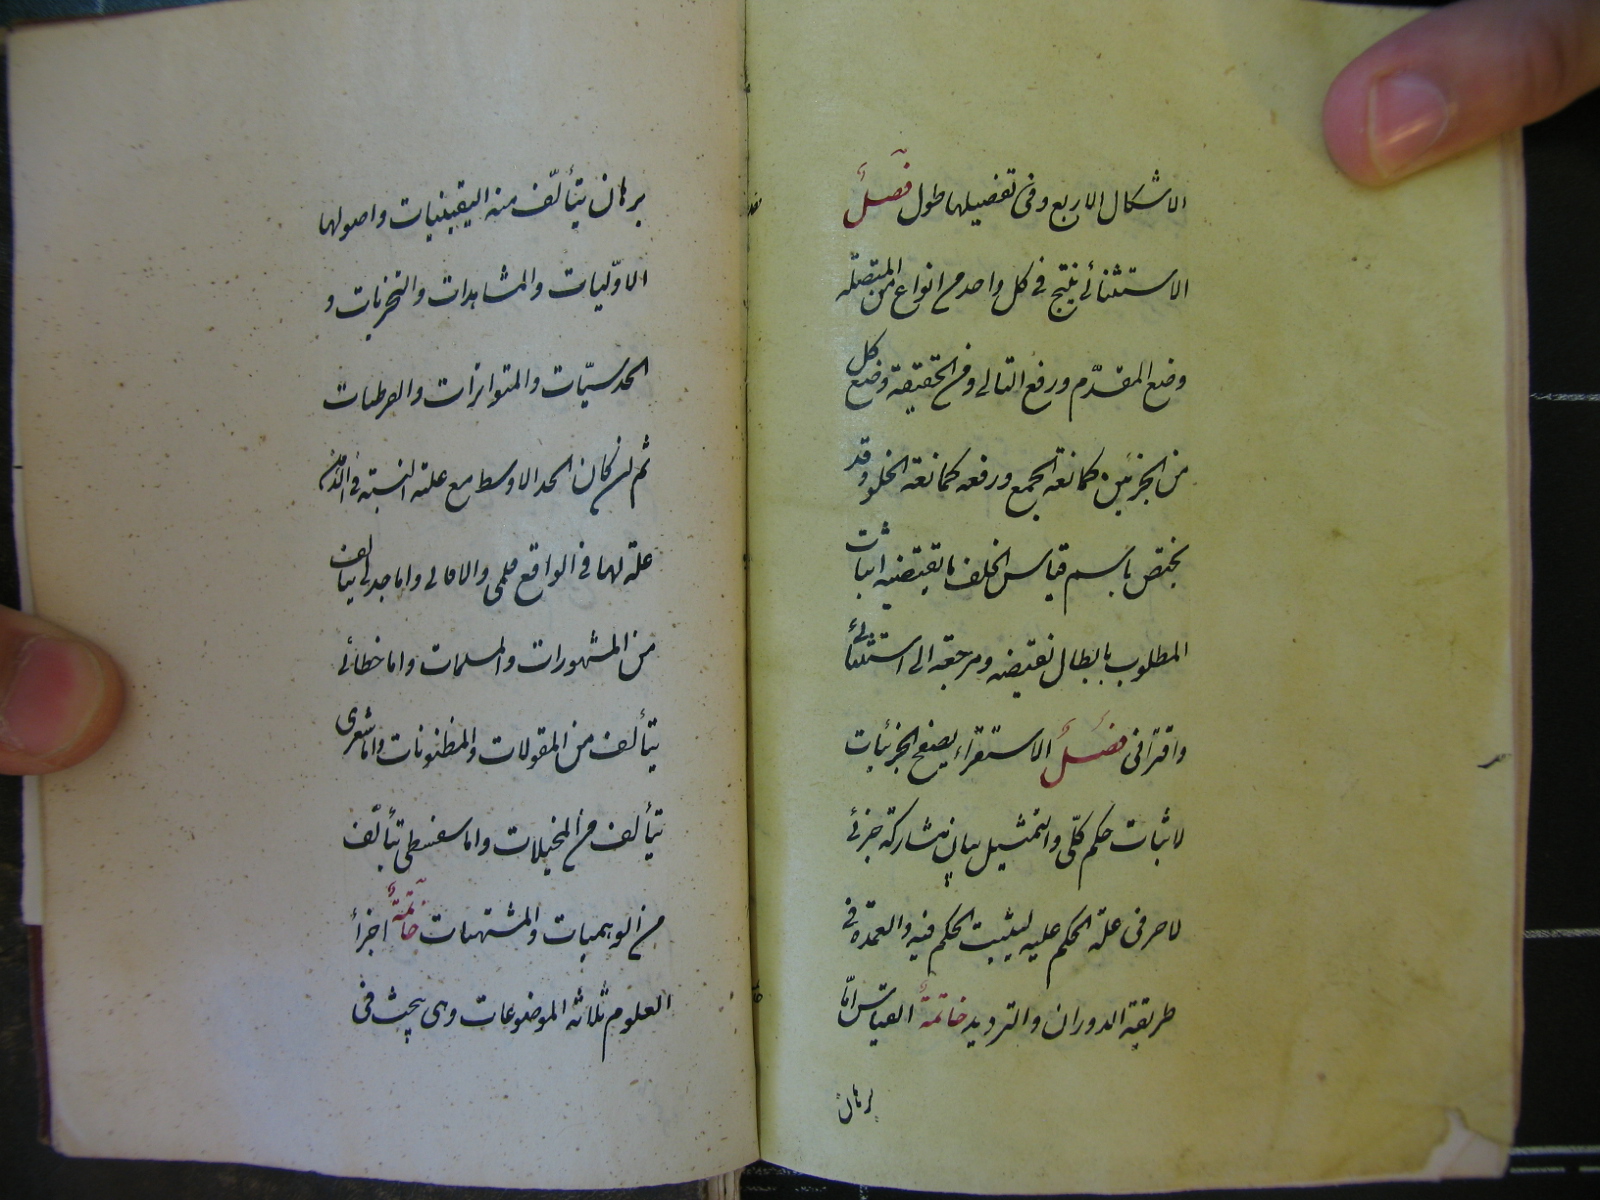 الاشكال الاربع وفى تفصيلها طول فصلٌ
الاستثنائى ينتج فى كل واحد من انواع من المتصله
وضع المقدّم ورفع التالى ومن الحقيقة وضع كل
من الجزئين كمانعة الجمع ورفعه كمانعة الخلو وقد
يختص باسم قياس الخلف ما يقتضيه اثبات
المطلوب بابطال نقيضه ومرجعه الى استثنائى
واقترانى فصلٌ الاستقراء تصفح الجزئيات
لاثبات حكم كلّى والتمثيل بيان مشاركة جزئى
لاخر فى علة الحكم عليه ليثبت الحكم فيه والعمدة فى
طريقة الدوران والترديد خاتمةٌ القياس امّا
برهان
برهان يتألّف منه اليقينيات واصولها
الاوّليات والمشاهدات والتجربيات و
الحدسيّات والمتواترات والفطريات
ثم ان كان الحد الاوسط مع علته النسبة فى الذهن
علة لها فى الواقع فلمى والا فانى واما جدلى يتألف
من المشهورات والمسلمات واما خطابى
يتألف من المقبولات والمظنونات واما شعرى
يتألف من المخيلات واما سفسطى يتألّف
من الوهميات والمشتبهات خاتمةٌ اجزأ
العلوم ثلاثة الموضوعات وهى يبحث فى